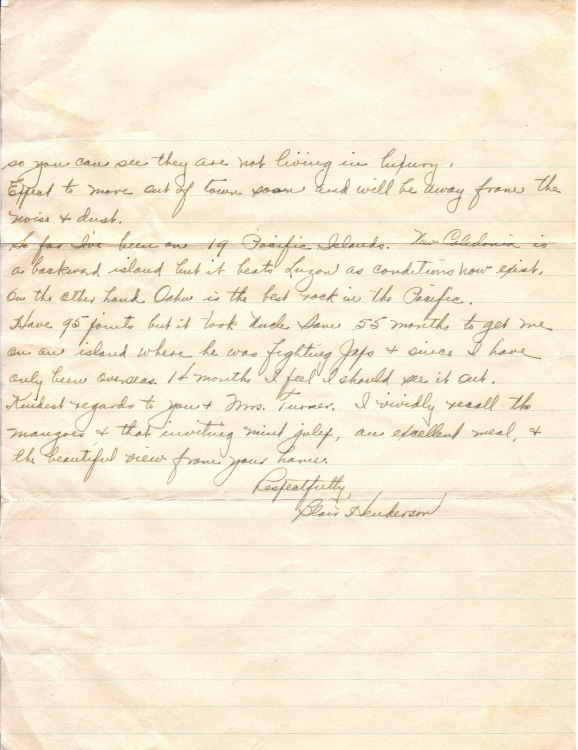 so you can see they are not living in luxury.
Expect to move out of town soon and will be away from the
noise & dust.
So far I've been on 19 Pacific Islands. New Caledonia is
a backward island but it beats Luzon as conditions now exist.
On the other hand Oahu is the best rock in the Pacific.
Have 95 points but it took Uncle Sam 55 months to get me
on an island where he was fighting Japs & since I have
only been overseas 14 months I feel I should see it out.
Kindest regards to you & Mrs. Turner. I vividly recall the
mangoes & that inviting mint julep, an excellent meal, &
the beautiful view from your home.
Respectfully,
Blair Henderson